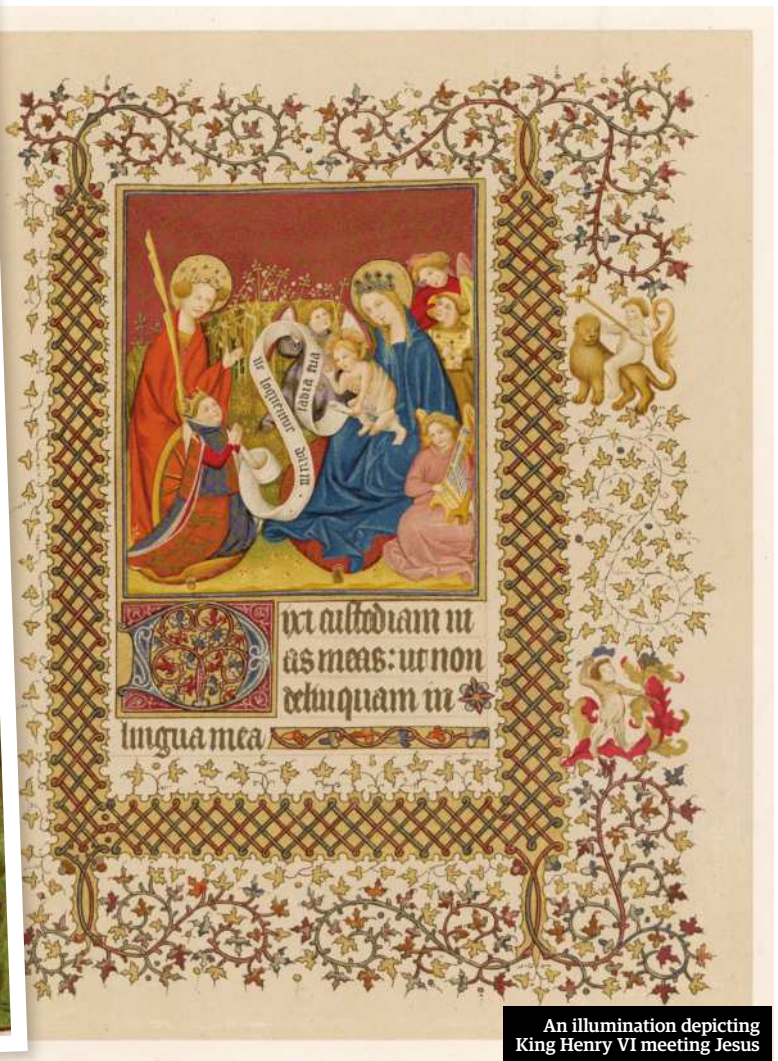 loquentur
labia tua
Dixi custodiam ui
as meas: ut non
delinquam in
lingua mea
An illumination depicting
King Henry VI meeting Jesus